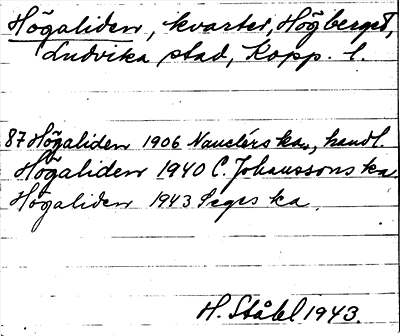 Högaliden, kvarter, Högberget,
Ludvika stad, Kopp. l.
87 Högaliden 1906 Nauclérs ka., handl.
Högaliden 1940 C. Johanssons ka.
Högaliden 1943 Seges ka.
H. Ståhl 1943.